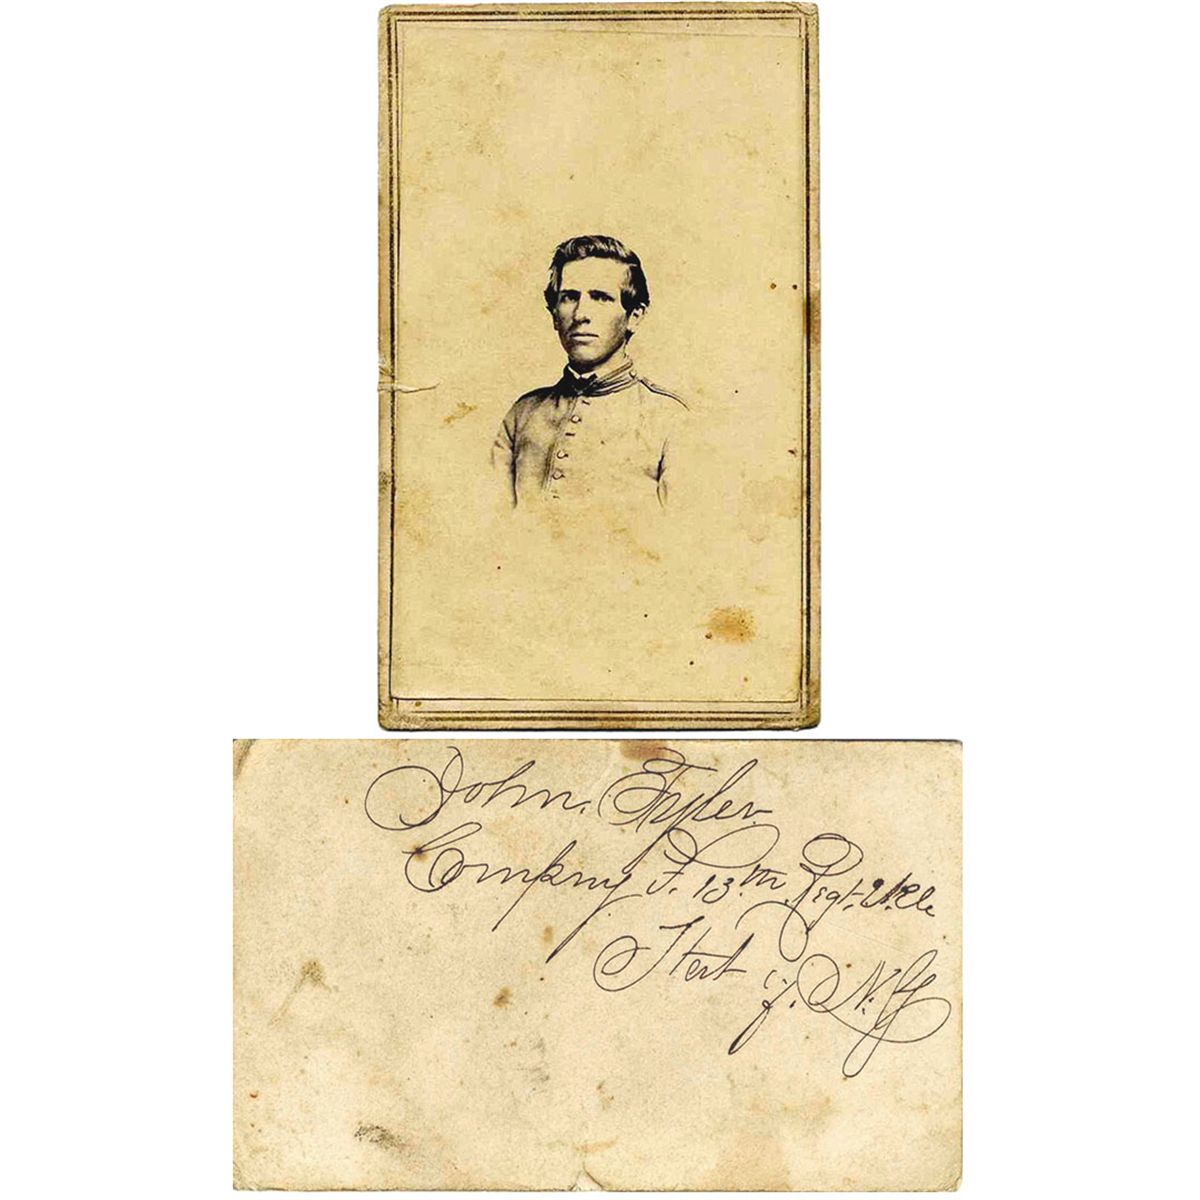 John. Tyler.
Company F. 13th. Regt.
Stert of. N.Y